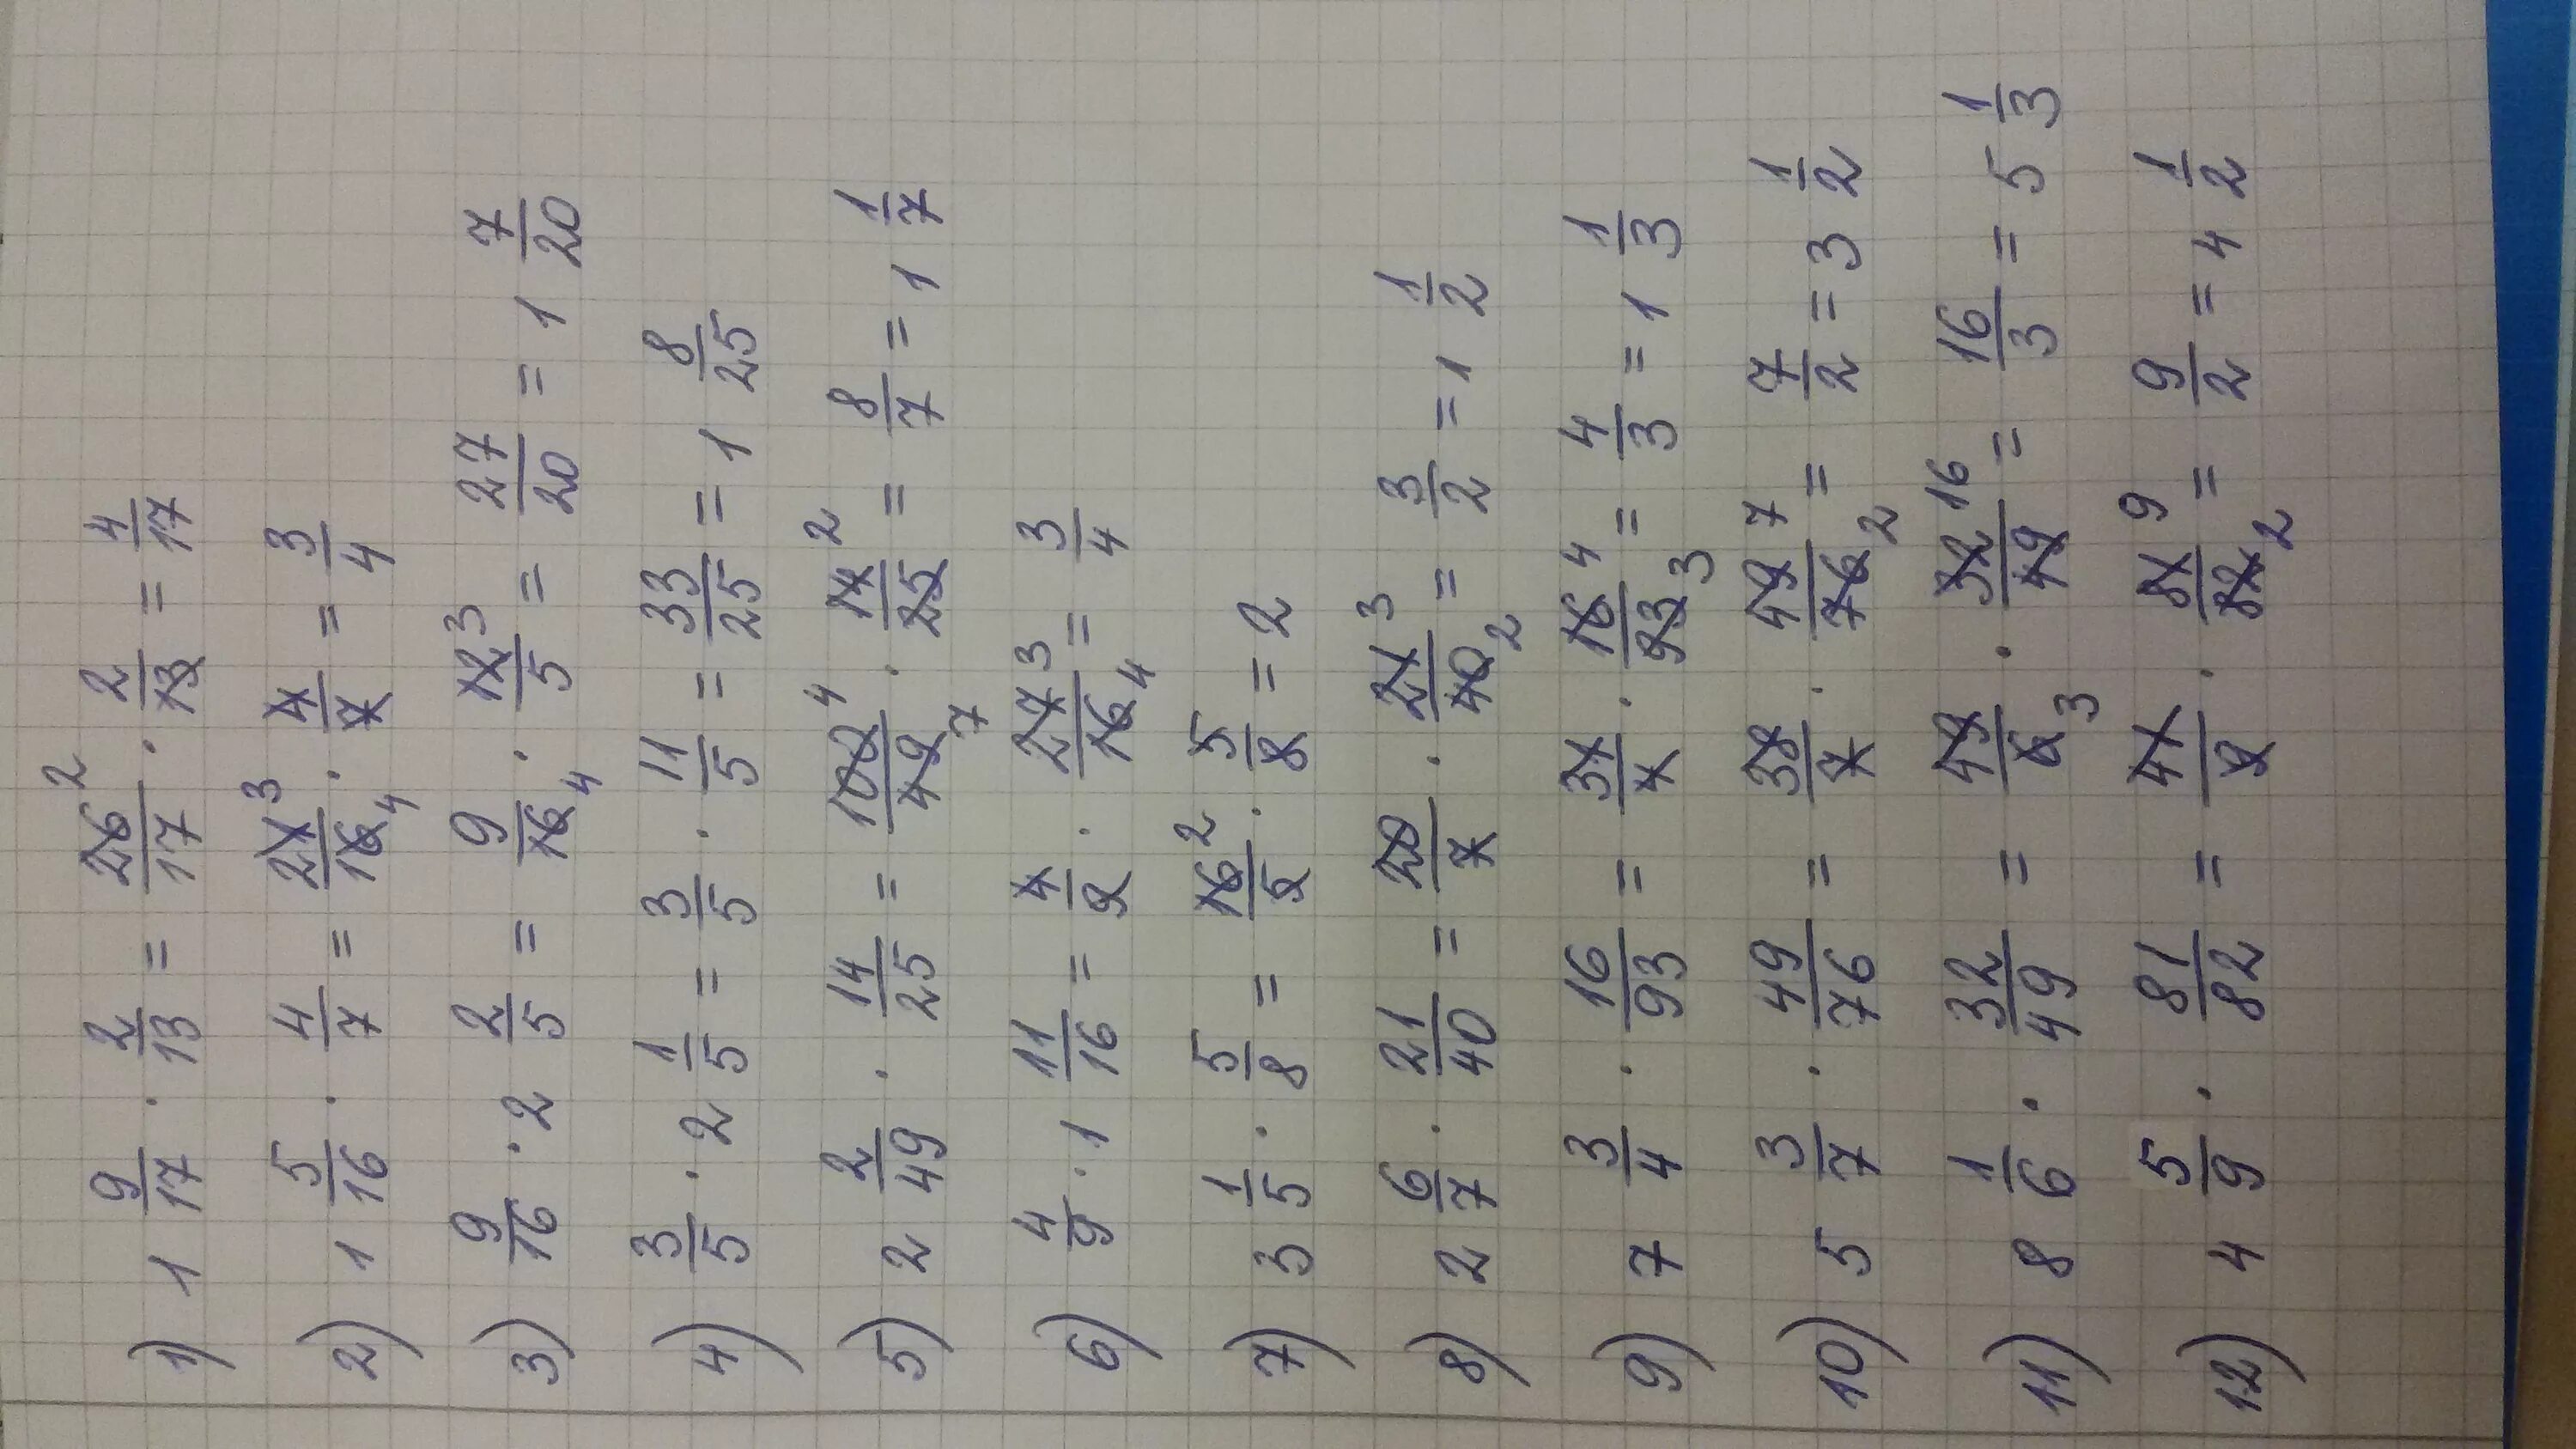 1) 1 9/17 · 2/13 = 26 2/17 · 2/13 = 4/17
2) 1 5/16 · 4/7 = 21 3/16 4 · 4/7 = 3/4
3) 9/16 · 2 2/5 = 9/16 4 · 12 3/5 = 27/20 = 1 7/20
4) 3/5 · 2 1/5 = 3/5 · 11/5 = 33/25 = 1 8/25
5) 2 2/49 · 14/25 = 100 4/49 7 · 14 2/25 = 8/7 = 1 1/7
6) 4/9 · 1 11/16 = 4/9 · 27 3/16 4 = 3/4
7) 3 1/5 · 5/8 = 16 2/5 · 5/8 = 2
8) 2 6/7 · 21/40 = 20/7 · 21 3/40 2 = 3/2 = 1 1/2
9) 7 3/4 · 16/93 = 31/4 · 16 4/93 3 = 4/3 = 1 1/3
10) 5 3/7 · 49/76 = 38/7 · 49 7/76 2 = 7/2 = 3 1/2
11) 8 1/6 · 32/49 = 49/6 3 · 32 16/49 = 16/3 = 5 1/3
12) 4 5/9 · 81/82 = 41/9 · 81 9/82 2 = 9/2 = 4 1/2